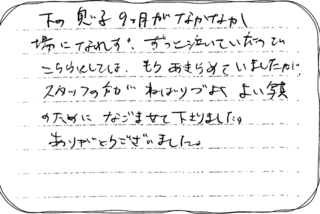 下の息子9ヶ月がなかなか
場になれず、ずっと泣いていたので
こちらとしては、もうあきらめていましたが、
スタッフの方が ねばりづよく よい写真
のために なごませて下さりました。
ありがとうございました。